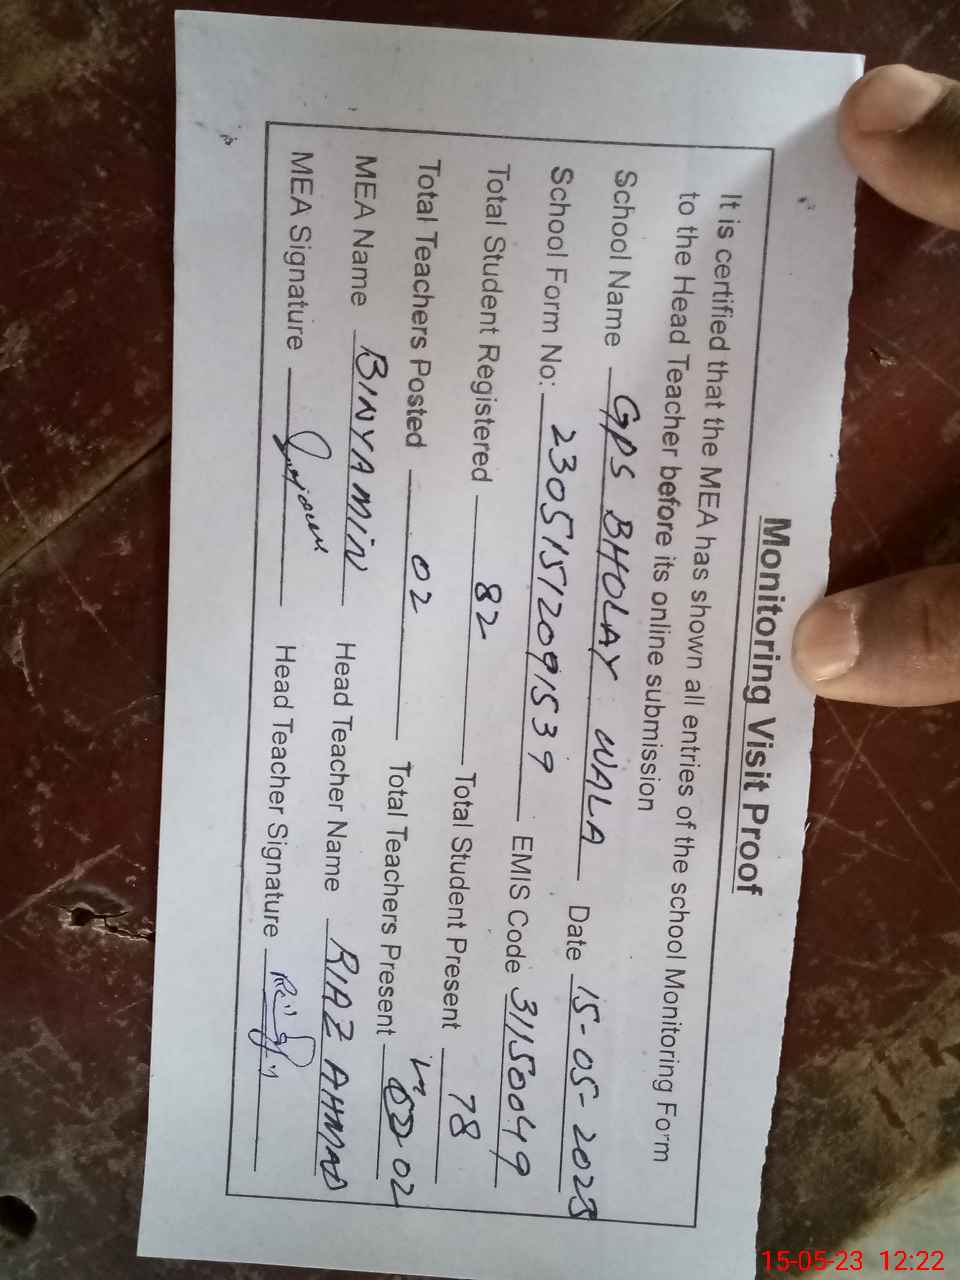 Monitoring Visit Proof
It is certified that the MEA has shown all entries of the school Monitoring Form
to the Head Teacher before its online submission
School Name GPS BHOLAY WALA Date 15-05-2023
School Form No: 2305151209 1539 EMIS Code 31150049
Total Student Registered 82 Total Student Present 78
Total Teachers Posted 02 Total Teachers Present 02
MEA Name BINYAMIN Head Teacher Name RIAZ AHMAD
MEA Signature Head Teacher Signature
15-05-23 12:22